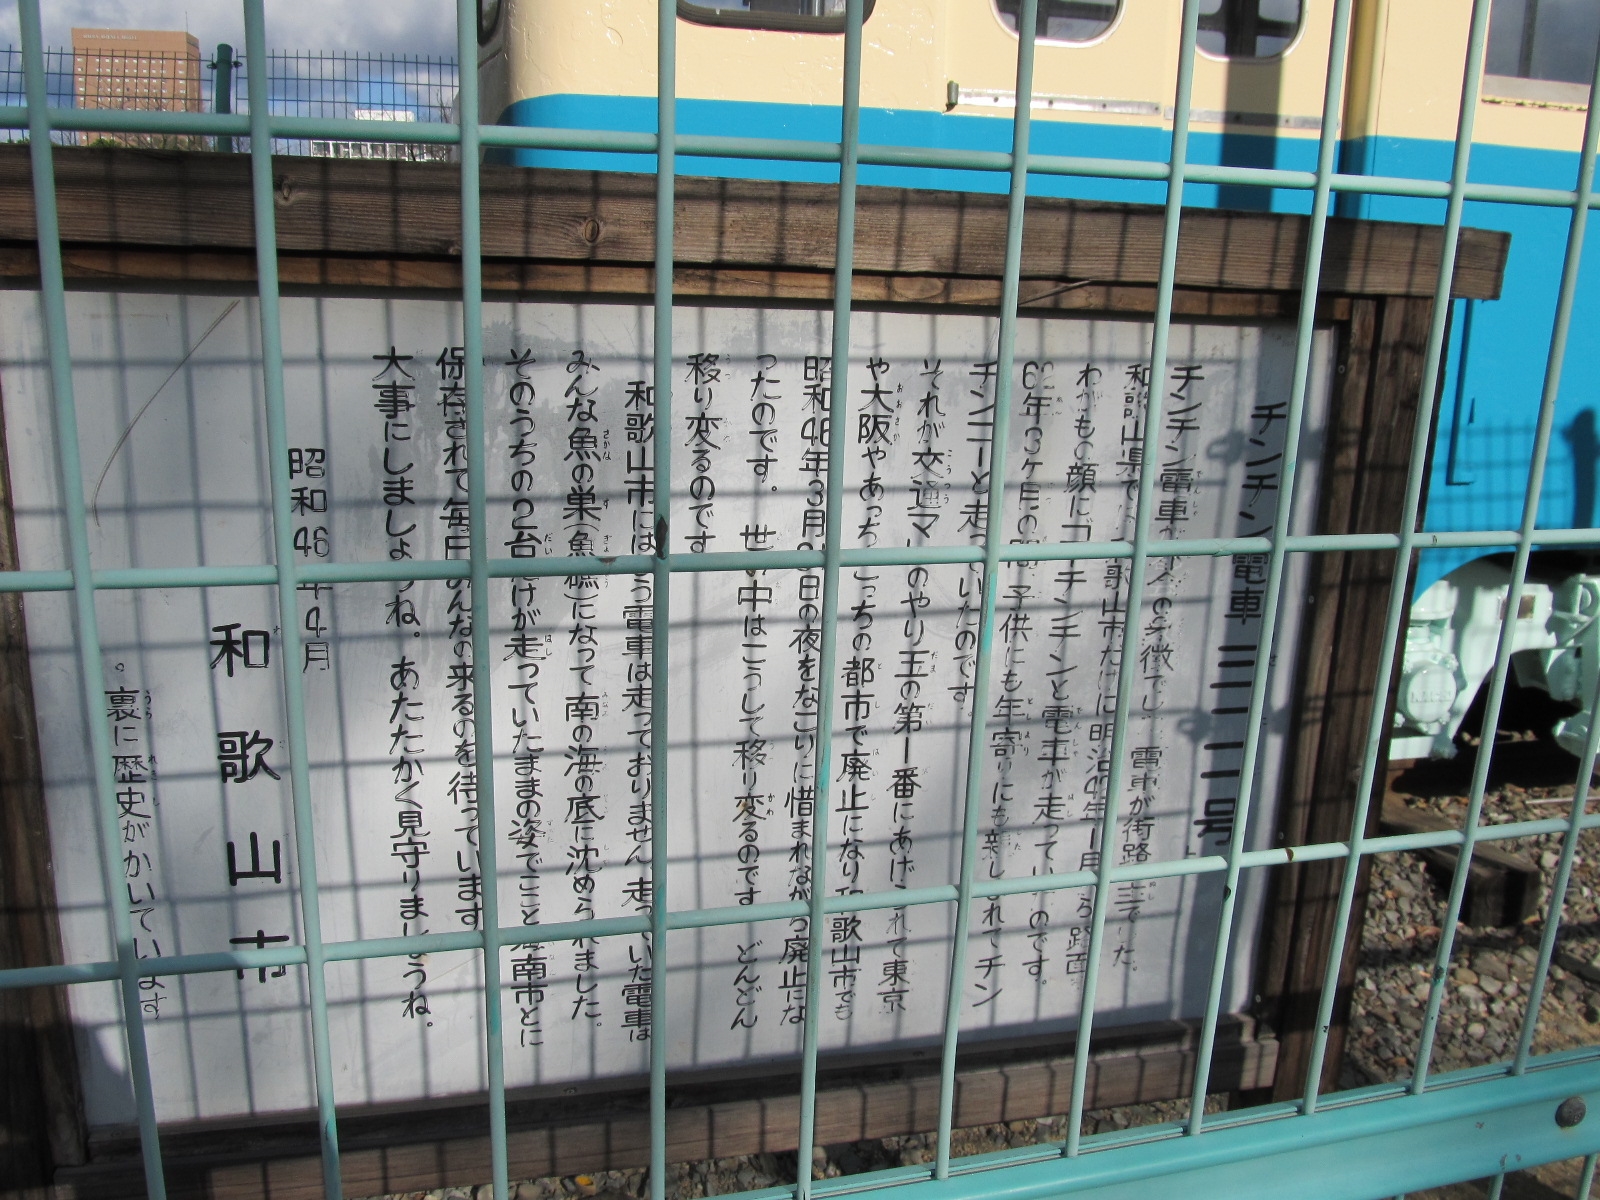 チンチン電車 三二一号
チンチン電車が の象徴でし 電車が街路 でした。
和歌山県では 歌山市だけに明治42年1月 ら路面
わがもの顔にゴーチンチンと電車が走ってい のです。
62年3ヶ月の間 子供にも年寄りにも親し れてチン
チンゴーと走っていたのです。
それが交通マ のやり玉の第一番にあげ れて東京
や大阪やあっちこっちの都市で廃止になり 歌山市でも
昭和46年3月 日の夜をなごりに惜まれながら廃止にな
ったのです。 世の中はこうして移り変るのです どんどん
移り変るのです
和歌山市には う電車は走っておりません、走っていた電車は
みんな魚の巣(魚礁)になって南の海の底に沈められました。
そのうちの2台だけが走っていたままの姿でここと海南市とに
保存されて毎日みんなの来るのを待っています
大事にしましょうね。あたたかく見守りましょうね。
昭和46年4月
和歌山市
。裏に歴史がかいています